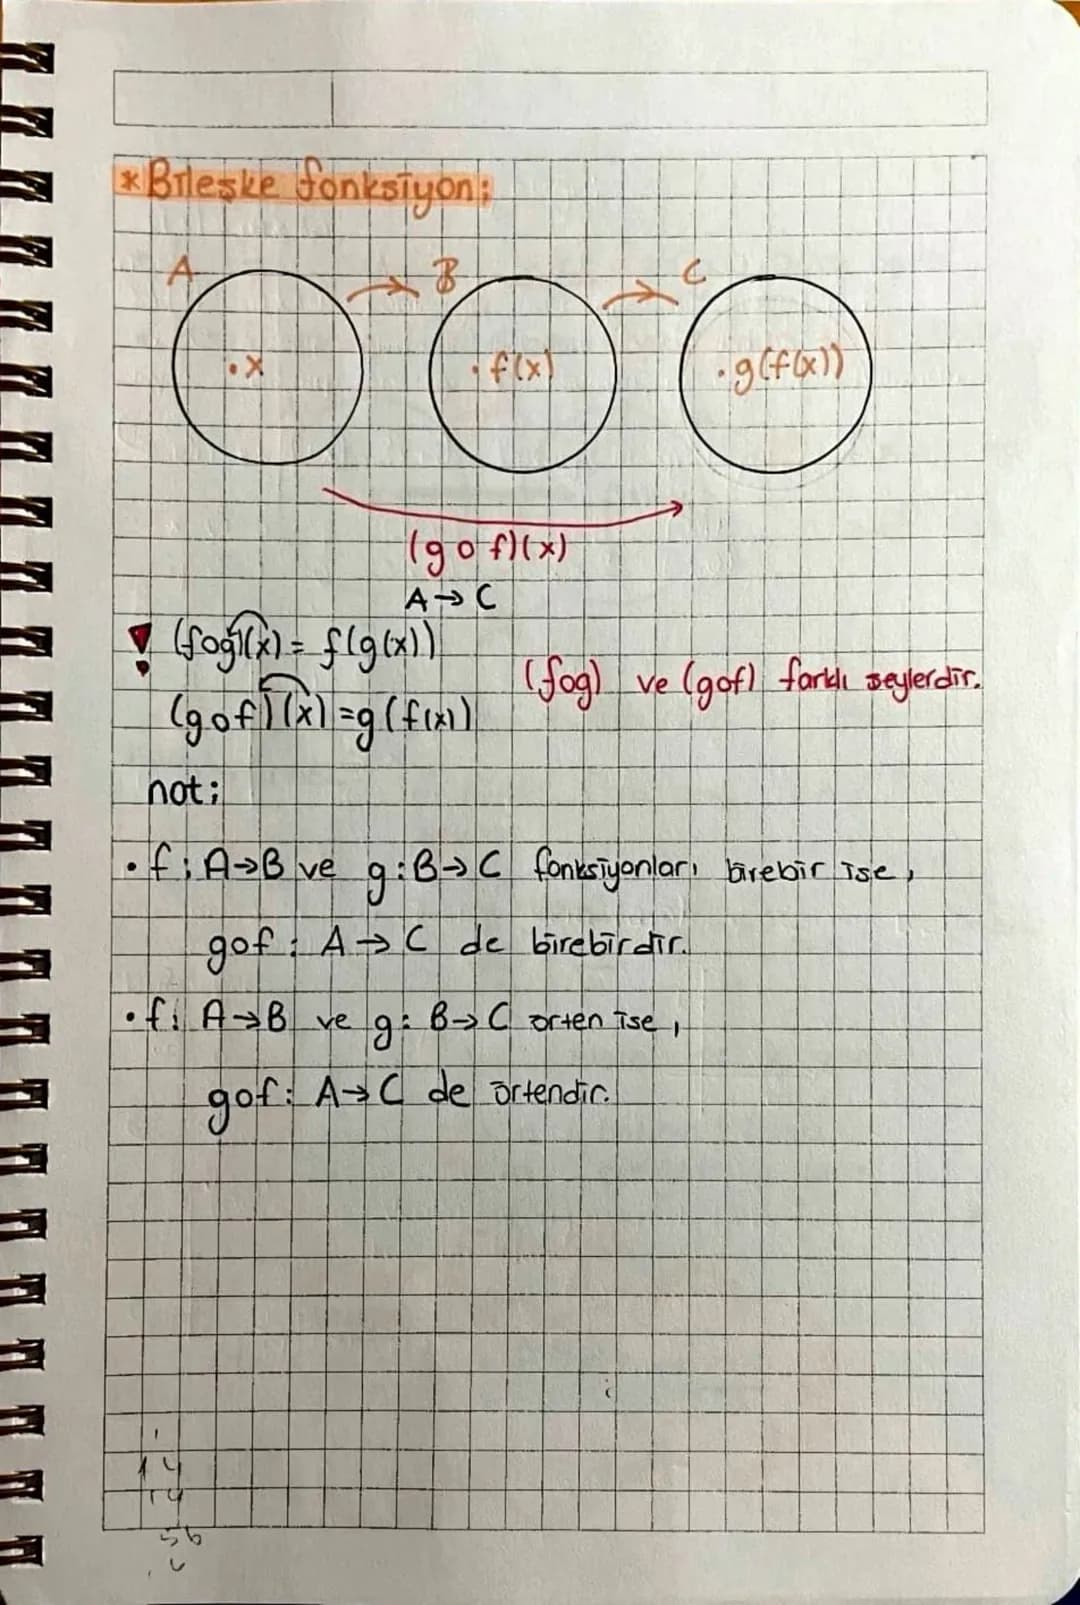 * Bileşke fonksiyon:
A B C
. x . f(x) . g(f(x))
(gof)(x)
A → C
! (fog)(x) = f(g(x))
(fog) ve (gof) farklı şeylerdir.
(gof)(x) = g(f(x))
not;
• f: A→B ve g: B→C fonksiyonları birebir ise,
gof: A → C de birebirdir.
• f: A→B ve g: B→C örten ise,
gof: A→C de örtendir.
14
14
56